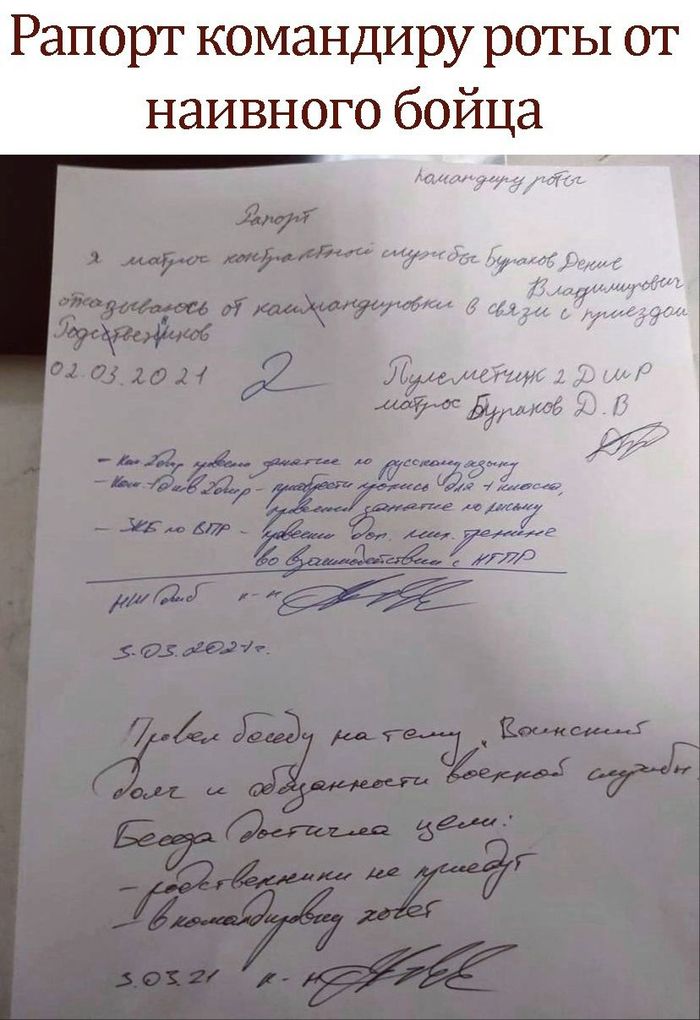 Рапорт командиру роты от
наивного бойца
Командиру роты
Рапорт
Я матрос контрактной службы Бураков Денис
Владимирович
отказываюсь от каимандировки в связи с приездом
Годствеников
02.03.2021 2 Пулеметчик 2 ДШР
матрос Бураков Д.В
- Ком. 2 дшр провести занятие по русскому языку
- Ком. 1 дшв 2 дшр - приобрести пропись для 1 класса,
провести занятие по письму
- ЗКБ по ВПР - провести доп. псих. тренинг
во взаимодействии с НГПР
НШ дшб к-н
3.03.2021г.
Провел беседу на тему "Воинский
долг и обязанности военной службы
Беседа достигла цели:
- родственники не приедут
- в командировку хочет
3.03.21 к-н